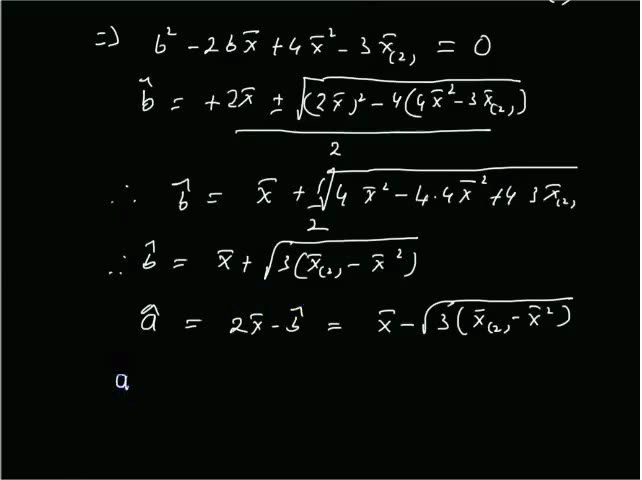 ⇒) b² - 2bx̄ + 4x̄² - 3x̄₍₂₎ = 0
b̂ = +2x̄ ± √((2x̄)² - 4(4x̄² - 3x̄₍₂₎)
2
∴ b̂ = x̄ + 1/2 √(4 x̄² - 4·4x̄² + 4 3x̄₍₂₎
∴ b̂ = x̄ + √(3(x̄₍₂₎ - x̄²)
â = 2x̄ - b̂ = x̄ - √(3(x̄₍₂₎ - x̄²)
a